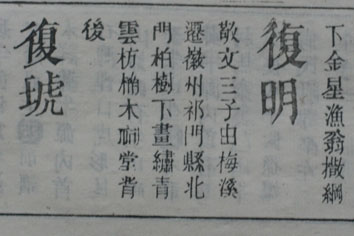 下金星漁翁撒網
復明
敬文三子由梅溪
遷徽州祁門縣北
門柏樹下畫繡青
雲枋桷木祠堂背
後
復琥